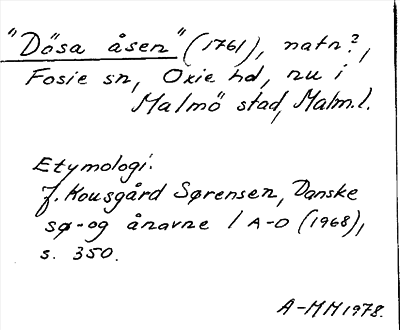 "Dösa åsen" (1761), natn?,
Fosie sn, Oxie hd, nu i
Malmö stad, Malm.l.
Etymologi:
J. Kousgård Sørensen, Danske
sø-og ånavne 1 A-D (1968),
s. 350.
A-MM 1978.